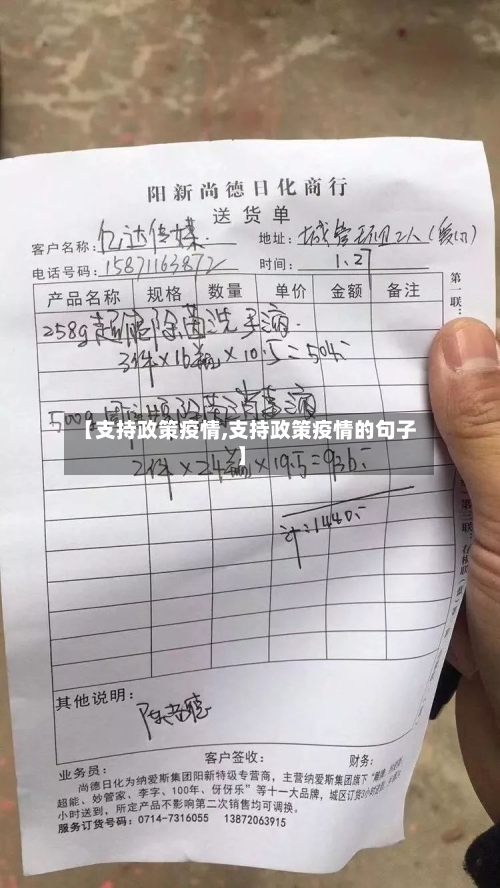 阳新尚德日化商行
送货单
客户名称: 亿达传媒 地址:
电话号码: 15871163872 时间: 1.27
产品名称 规格 数量 单价 金额 备注
第一联:
258g超能除菌洗手液
3件×16瓶×10.5=504
500g
【支持政策疫情,支持政策疫情的句子
】
2件×24瓶×19.5=936
计:1440
其他说明:
业务员: 客户签收: 财务:
尚德日化为纳爱斯集团阳新特级专营商,主营纳爱斯集团旗下“
超能、妙管家、李字、100年、伢伢乐”等十一大品牌,城区订货
小时送到,所定产品不影响第二次销售均可调换。
服务订货号码:0714-7316055 13872063915